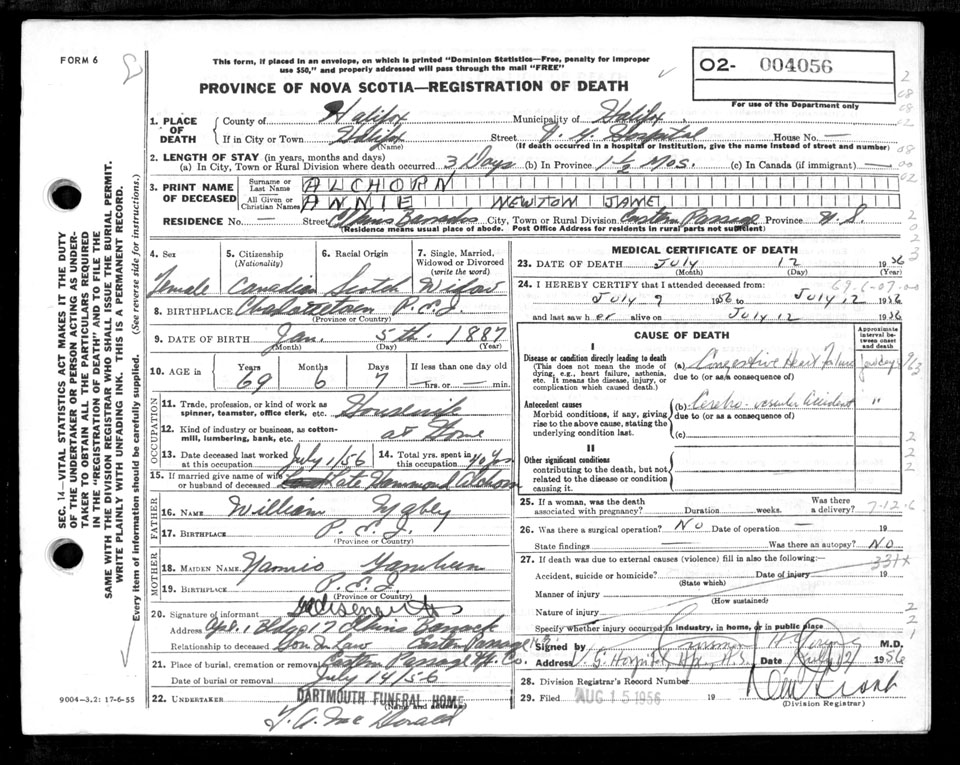 FORM 6
This form, if placed in an envelope, on which is printed "Dominion Statistics—Free, penalty for improper
use $50," and properly addressed will pass through the mail "FREE"
02- 004056
For use of the Department only
PROVINCE OF NOVA SCOTIA—REGISTRATION OF DEATH
1. PLACE OF DEATH
County of Halifax Municipality of Halifax
If in City or Town Halifax (Name) Street V. G. Hospital House No. —
(If death occurred in a hospital or institution, give the name instead of street and number)
2. LENGTH OF STAY (in years, months and days)
(a) In City, Town or Rural Division where death occurred 3 Days (b) In Province 1 1/2 Mos. (c) In Canada (if immigrant) —
3. PRINT NAME OF DECEASED
Surname or Last Name ALCHORN
All Given or Christian Names ANNIE NEWTON JANE
RESIDENCE No. — Street City, Town or Rural Division Eastern Passage Province N.S.
(Residence means usual place of abode. Post Office Address for residents in rural parts not sufficient)
4. Sex Female
5. Citizenship (Nationality) Canadian
6. Racial Origin Scotch
7. Single, Married, Widowed or Divorced (write the word) Widow
8. BIRTHPLACE Charlottetown P.E.I.
(Province or Country)
9. DATE OF BIRTH Jan. 5th. 1887
(Month) (Day) (Year)
10. AGE in Years 69 Months 6 Days 7 If less than one day old — hrs. or — min.
OCCUPATION
11. Trade, profession, or kind of work as spinner, teamster, office clerk, etc. Housewife
12. Kind of industry or business, as cotton-mill, lumbering, bank, etc. at Home
13. Date deceased last worked at this occupation July 1/56
14. Total yrs. spent in this occupation 40 Yrs
15. If married give name of wife or husband of deceased
FATHER
16. NAME William
17. BIRTHPLACE P.E.I.
(Province or Country)
MOTHER
18. MAIDEN NAME
19. BIRTHPLACE P.E.I.
(Province or Country)
20. Signature of informant
Address Apt. 1, Bldg 17
Relationship to deceased Son In Law Eastern Passage N.S.
21. Place of burial, cremation or removal Eastern Passage Hfx. Co.
Date of burial or removal July 14/56
22. UNDERTAKER DARTMOUTH FUNERAL HOME
(Name and Address)
9004-3.2: 17-6-55
MEDICAL CERTIFICATE OF DEATH
23. DATE OF DEATH July 12 1956
(Month) (Day) (Year)
24. I HEREBY CERTIFY that I attended deceased from:
July 9 1956 to July 12 1956
and last saw her alive on July 12 1956
CAUSE OF DEATH
Approximate interval between onset and death
I
Disease or condition directly leading to death
(This does not mean the mode of dying, e.g., heart failure, asthenia, etc. It means the disease, injury, or complication which caused death.)
(a) Congestive Heart Failure few days
due to (or as a consequence of)
Antecedent causes
Morbid conditions, if any, giving rise to the above cause, stating the underlying condition last.
(b) Cerebro-vascular accident "
due to (or as a consequence of)
(c)
II
Other significant conditions
contributing to the death, but not related to the disease or condition causing it.
25. If a woman, was the death associated with pregnancy? Duration weeks. Was there a delivery?
26. Was there a surgical operation? No Date of operation — 19
State findings — Was there an autopsy? No
27. If death was due to external causes (violence) fill in also the following:—
Accident, suicide or homicide? Date of injury 19
(State which)
Manner of injury
(How sustained)
Nature of injury
Specify whether injury occurred in industry, in home, or in public place
Signed by M.D.
Address V. G. Hospital Date July 12 1956
28. Division Registrar's Record Number
29. Filed AUG 15 1956 19
(Division Registrar)
SEC. 14—VITAL STATISTICS ACT MAKES IT THE DUTY
OF THE UNDERTAKER OR PERSON ACTING AS UNDER-
TAKER TO OBTAIN ALL THE PARTICULARS REQUIRED
IN THE "REGISTRATION OF DEATH" AND TO FILE THE
SAME WITH THE DIVISION REGISTRAR WHO SHALL ISSUE THE BURIAL PERMIT.
WRITE PLAINLY WITH UNFADING INK. THIS IS A PERMANENT RECORD.
Every item of information should be carefully supplied. (See reverse side for instructions.)